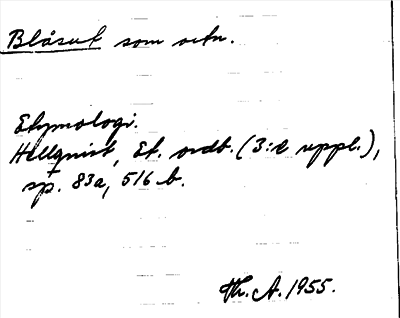 Blåsut som ortn.
Etymologi.
Hellquist, Et. ordb. (3:e uppl.),
sp. 83a, 516 b.
Th. A. 1955.